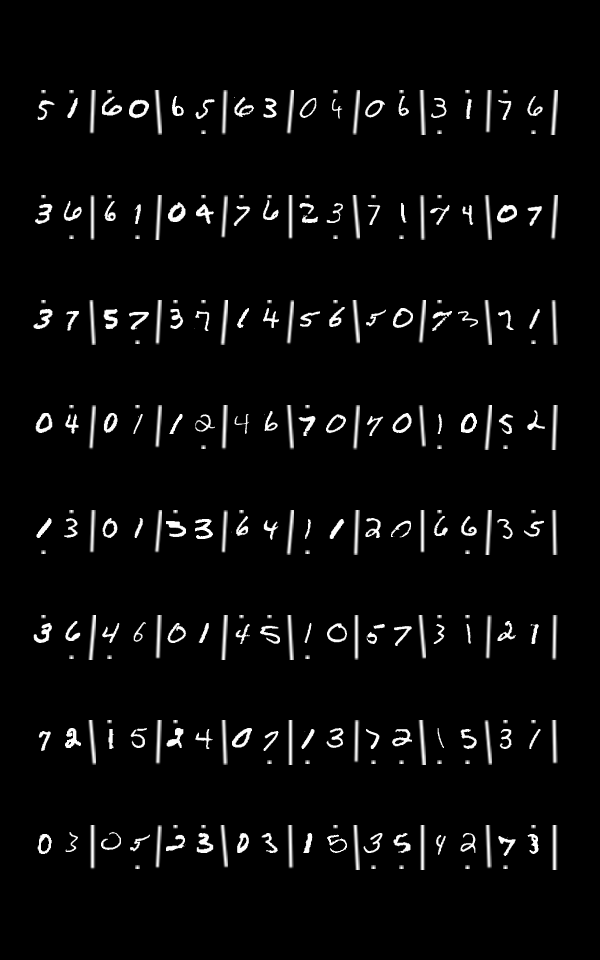 5 1 | 6 0 | 6 5 | 6 3 | 0 4 | 0 6 | 3 1 | 7 6 |
3 6 | 6 1 | 0 4 | 7 6 | 2 3 | 7 1 | 7 4 | 0 7 |
3 7 | 5 7 | 3 7 | 1 4 | 5 6 | 5 0 | 7 3 | 7 1 |
0 4 | 0 1 | 1 2 | 4 6 | 7 0 | 7 0 | 1 0 | 5 2 |
1 3 | 0 1 | 3 3 | 6 4 | 1 1 | 2 0 | 6 6 | 3 5 |
3 6 | 4 6 | 0 1 | 4 5 | 1 0 | 5 7 | 3 1 | 2 1 |
7 2 | 1 5 | 2 4 | 0 7 | 1 3 | 7 2 | 1 5 | 3 1 |
0 3 | 0 5 | 2 3 | 0 3 | 1 5 | 3 5 | 4 2 | 7 3 |